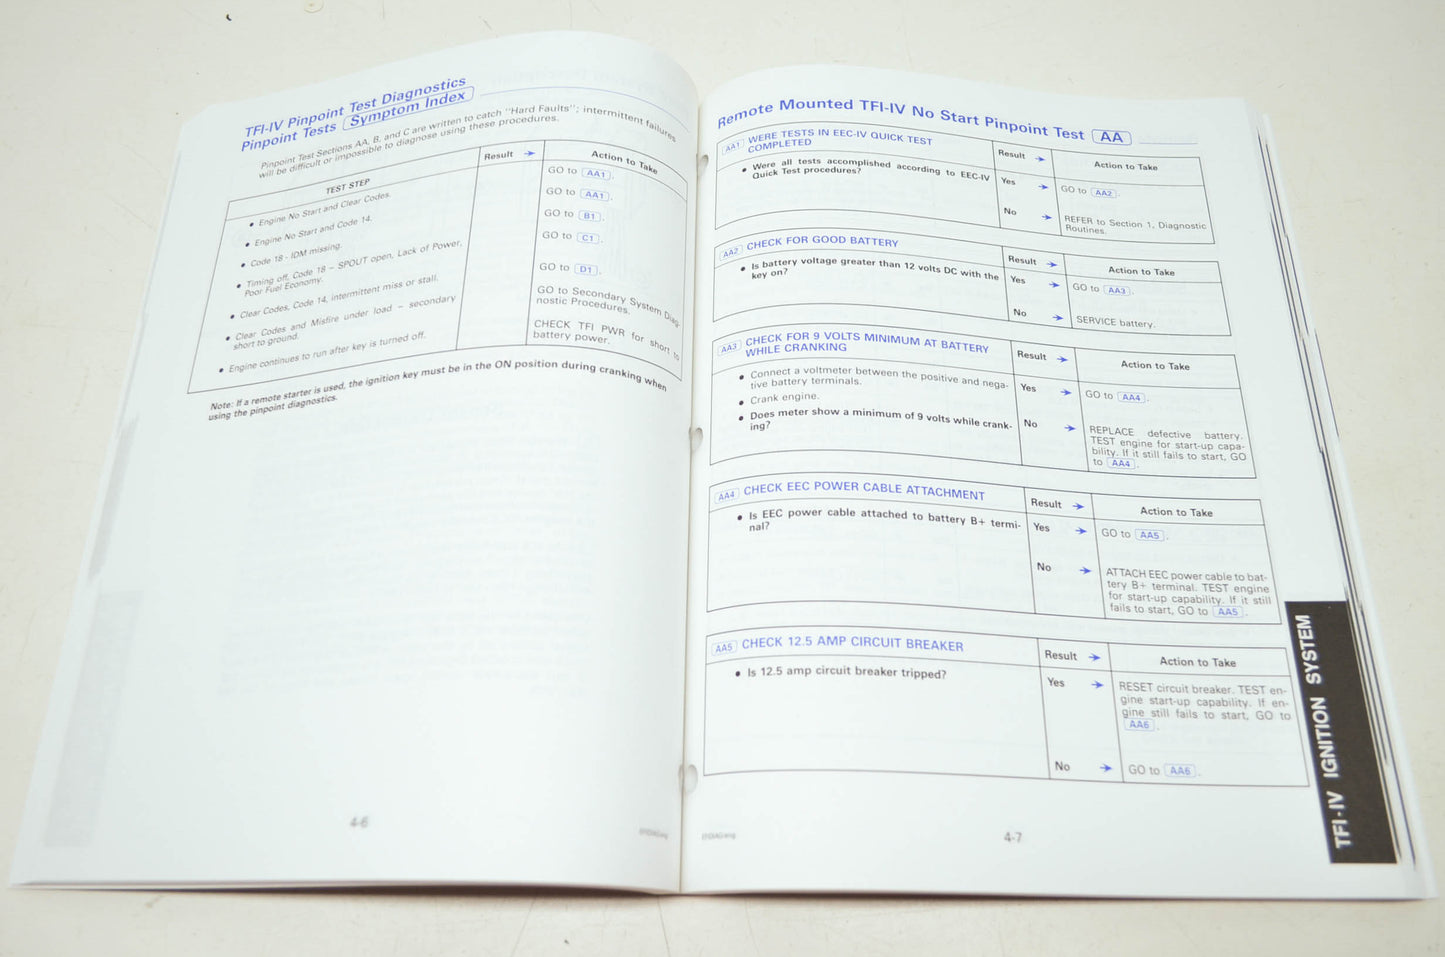 TFI-IV Pinpoint Test Diagnostics
Pinpoint Tests Symptom Index
Pinpoint Test Sections AA, B, and C are written to catch "Hard Faults"; intermittent failures
will be difficult or impossible to diagnose using these procedures.
TEST STEP
Result
Action to Take
• Engine No Start and Clear Codes.
GO to AA1 .
• Engine No Start and Code 14.
GO to AA1 .
• Code 18 - IDM missing.
GO to B1 .
• Timing off, Code 18 – SPOUT open, Lack of Power,
Poor Fuel Economy.
GO to C1 .
• Clear Codes, Code 14, intermittent miss or stall.
GO to D1 .
• Clear Codes and Misfire under load – secondary
short to ground.
GO to Secondary System Diag-
nostic Procedures.
• Engine continues to run after key is turned off.
CHECK TFI PWR for short to
battery power.
Note: If a remote starter is used, the ignition key must be in the ON position during cranking when
using the pinpoint diagnostics.
4-6
Remote Mounted TFI-IV No Start Pinpoint Test AA
AA1 WERE TESTS IN EEC-IV QUICK TEST
COMPLETED
Result
Action to Take
• Were all tests accomplished according to EEC-IV
Quick Test procedures?
Yes
GO to AA2 .
No
REFER to Section 1, Diagnostic
Routines.
AA2 CHECK FOR GOOD BATTERY
Result
Action to Take
• Is battery voltage greater than 12 volts DC with the
key on?
Yes
GO to AA3 .
No
SERVICE battery.
AA3 CHECK FOR 9 VOLTS MINIMUM AT BATTERY
WHILE CRANKING
Result
Action to Take
• Connect a voltmeter between the positive and nega-
tive battery terminals.
• Crank engine.
• Does meter show a minimum of 9 volts while crank-
ing?
Yes
GO to AA4 .
No
REPLACE defective battery.
TEST engine for start-up capa-
bility. If it still fails to start, GO
to AA4 .
AA4 CHECK EEC POWER CABLE ATTACHMENT
Result
Action to Take
• Is EEC power cable attached to battery B+ termi-
nal?
Yes
GO to AA5 .
No
ATTACH EEC power cable to bat-
tery B+ terminal. TEST engine
for start-up capability. If it still
fails to start, GO to AA5 .
AA5 CHECK 12.5 AMP CIRCUIT BREAKER
Result
Action to Take
• Is 12.5 amp circuit breaker tripped?
Yes
RESET circuit breaker. TEST en-
gine start-up capability. If en-
gine still fails to start, GO to
AA6 .
No
GO to AA6 .
4-7
TFI-IV IGNITION SYSTEM